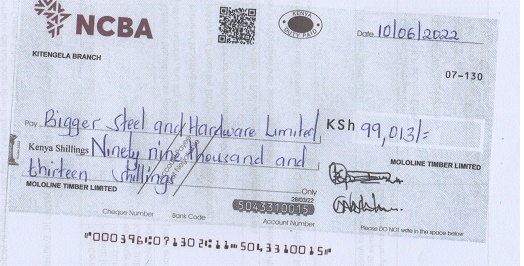 NCBA
KENYA
DUTY PAID
Date 10/06/2022
KITENGELA BRANCH
07-130
Pay Bigger Steel and Hardware Limited KSh 99,013/=
Kenya Shillings Ninety nine thousand and
thirteen shillings
MOLOLINE TIMBER LIMITED
MOLOLINE TIMBER LIMITED
Only
28/03/22
5043310015
Cheque Number Bank Code Account Number
Please DO NOT write in the space below
"000396:07130211-5043310015"